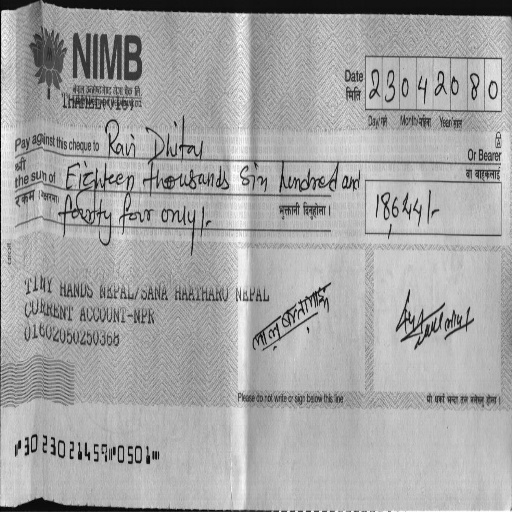 NIMB
Date 23042080
मिति
Day/गते Month/महिना Year/साल
Pay against this cheque to Ravi Dhital Or Bearer
श्री वा वाहकलाई
the sum of Eighteen thousands Six hundred and
भुक्तानी दिनुहोला । 18,644/-
fourty four only/-
TINY HANDS NEPAL/SANA HAATHARU NEPAL
CURRENT ACCOUNT-NPR
01602050250368
Please do not write or sign below this line
⑈30 23021459⑈0501⑈